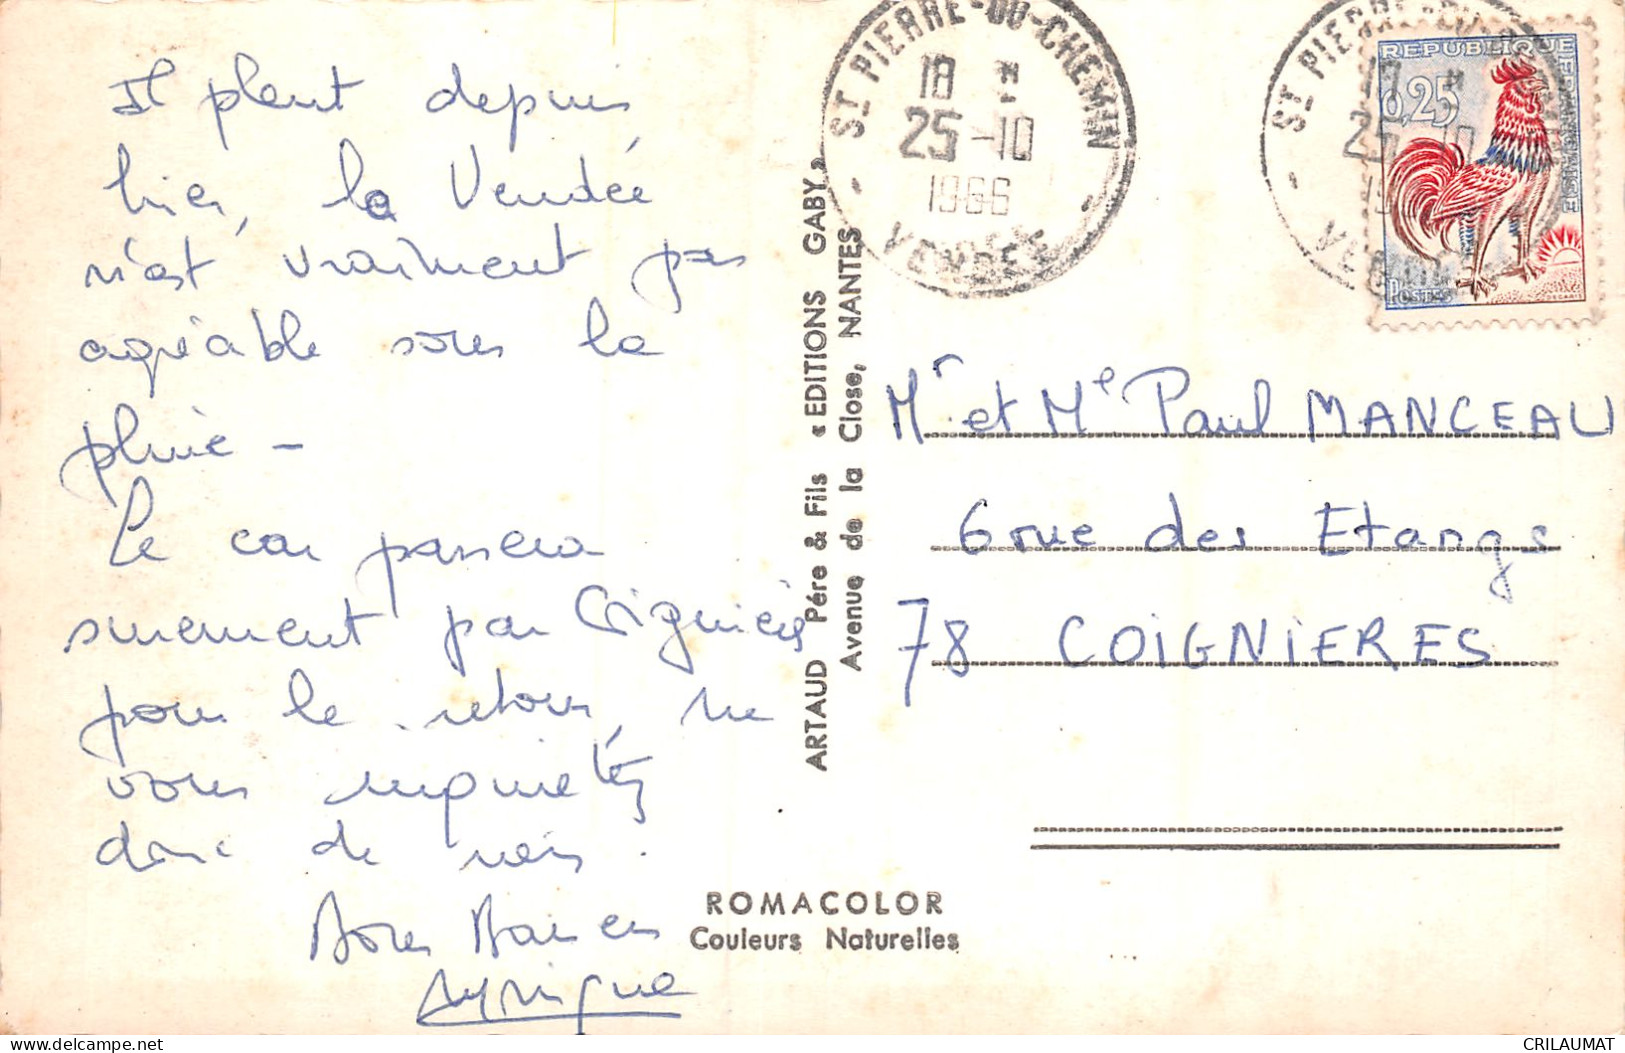 Il pleut depuis
hier, la Vendée
n'est vraiment pas
agréable sous la
pluie -
Le car passera
surement par Coignières
pour le retour, ne
vous inquiétez
donc de rien.
Bons Baisers
ARTAUD Père & Fils « EDITIONS GABY »
Avenue de la Close, NANTES
ROMACOLOR
Couleurs Naturelles
ST PIERRE-DU-CHEMIN
18 H
25-10
1966
VENDÉE
ST PIERRE-DU-
18 H
25-10
19
VENDÉE
REPUBLIQUE FRANÇAISE
0,25
POSTES
DECARIS
Mr et Me Paul MANCEAU
6 rue des Etangs
78 COIGNIERES
CRILAUMAT